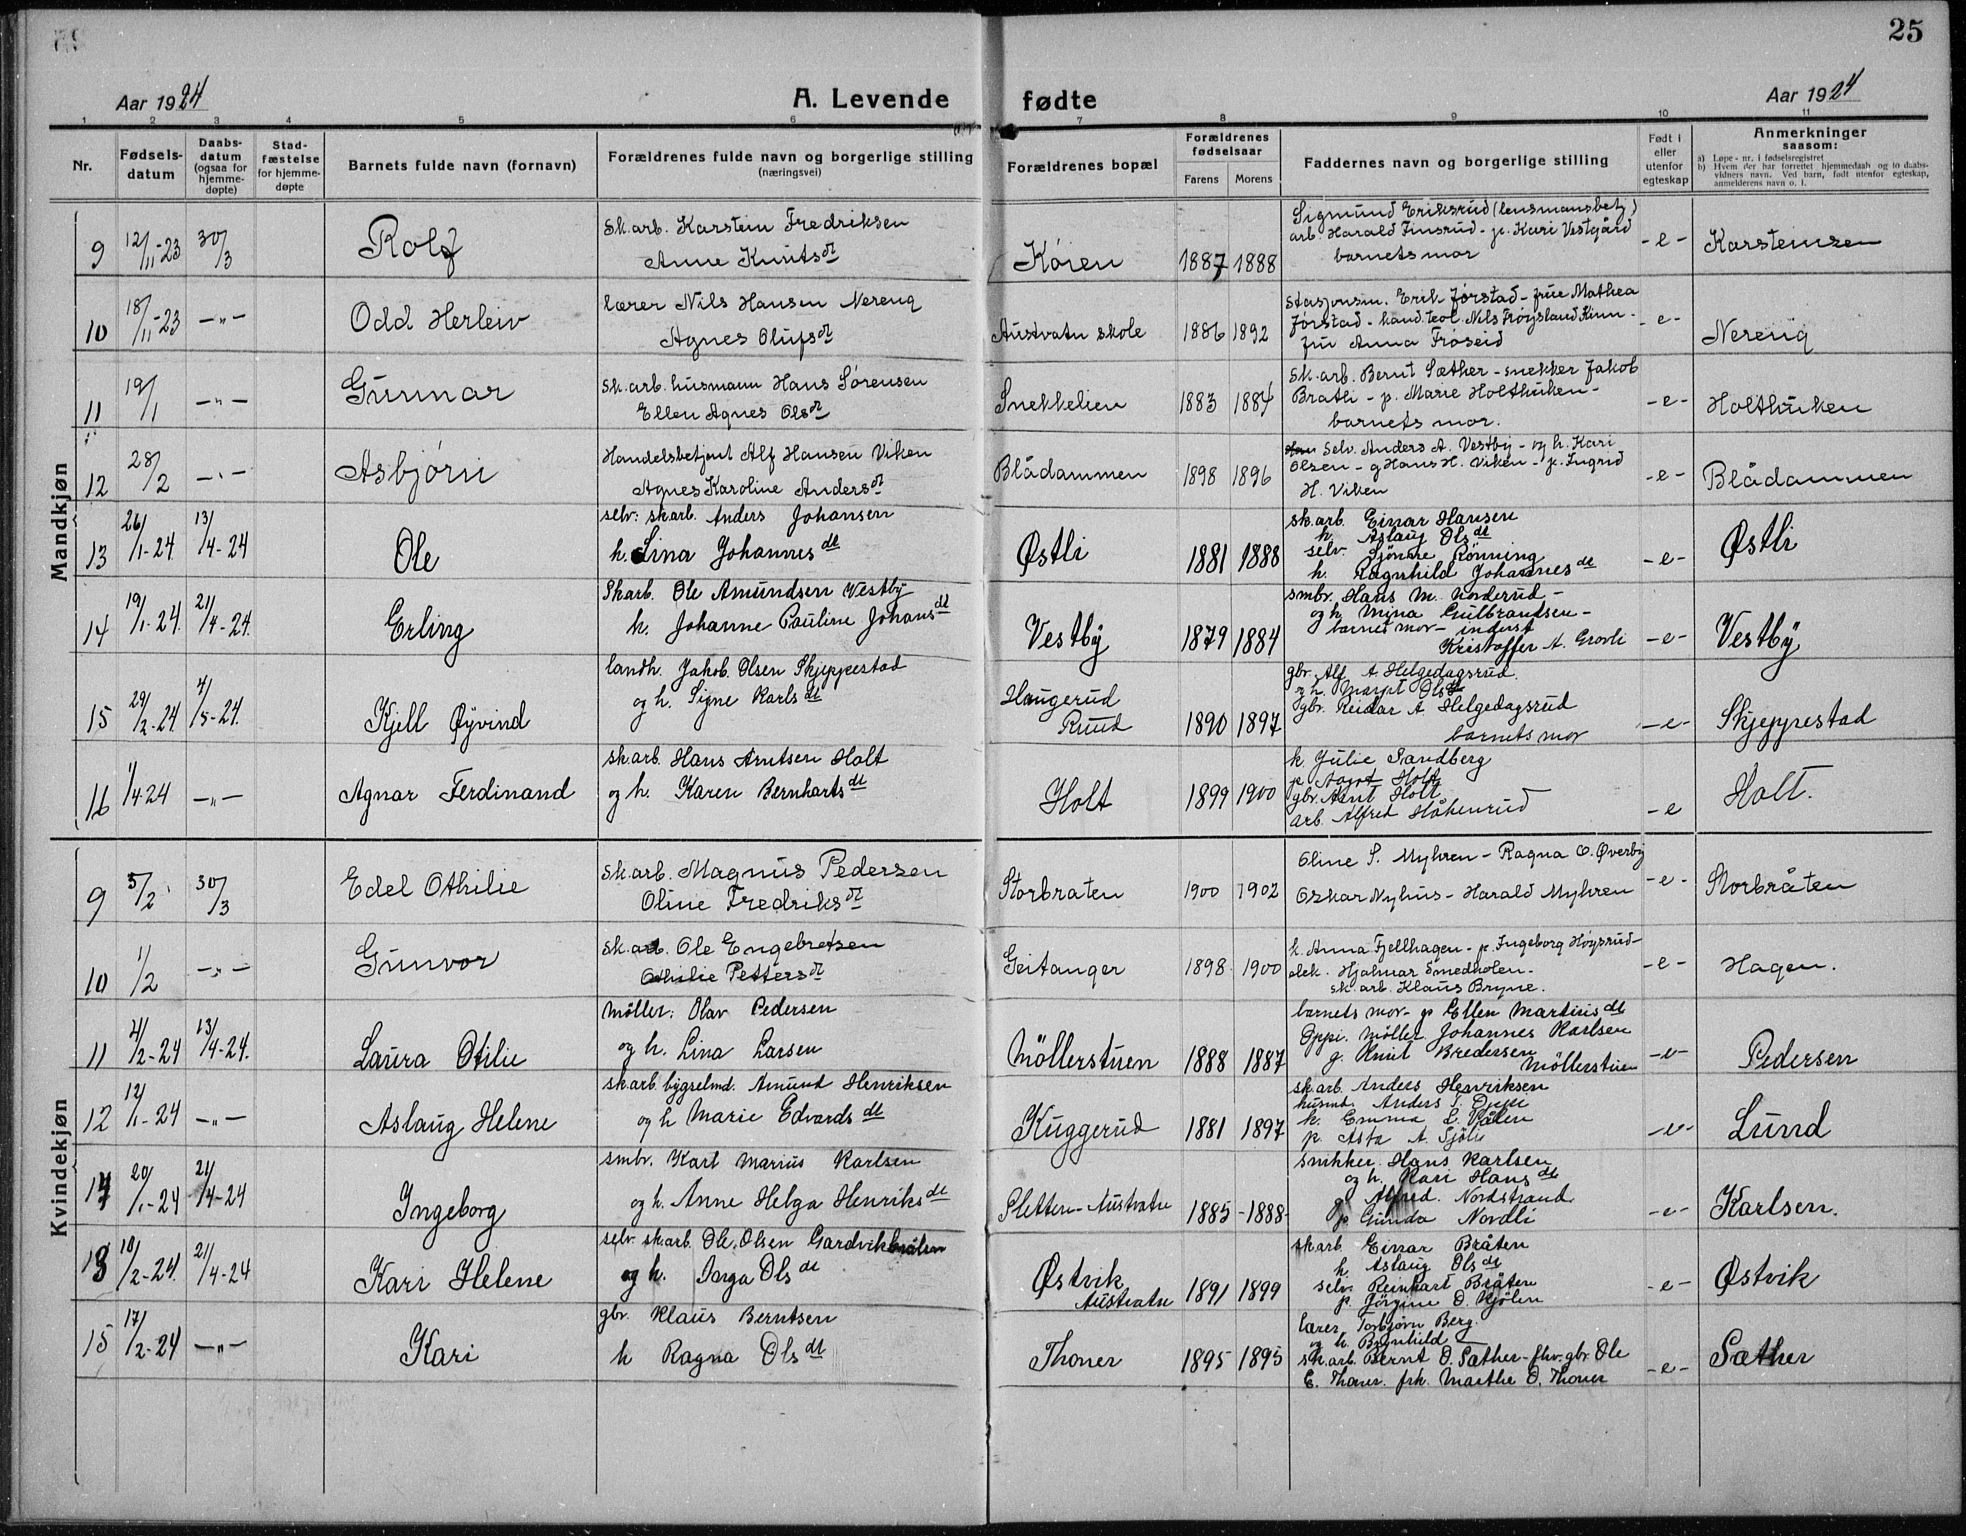 25
Aar 1924
A. Levende fødte
Aar 1924
1 2 3 4 5 6 7 8 9 10 11
Nr.
Fødsels-datum
Daabs-datum (ogsaa for hjemme-døpte)
Stad-fæstelse for hjemme-døpte
Barnets fulde navn (fornavn)
Forældrenes fulde navn og borgerlige stilling
(næringsvei)
Forældrenes bopæl
Forældrenes fødselsaar
Farens Morens
Faddernes navn og borgerlige stilling
Født i eller utenfor egteskap
Anmerkninger saasom:
a) Løpe-nr. i fødselsregistret
b) Hvem der har forrettet hjemmedaab og to daabs-
vidners navn. Ved barn, født utenfor egteskap,
anmelderens navn o. l.
Mandkjøn
9 12/11-23 30/3 Rolf
sk.arb. Karstein Fredriksen
Anne Knutsdt
Kören 1887 1888
Sigmund Eriksrud (lensmansbetj)
arb. Harald Finsrud - p. Kari Vestgård
barnets mor
-e- Karsteinsen
10 18/11-23 -"- Odd Herleiv
lærer Nils Hansen Nereng
Agnes Olufsdt
Austvatn skole 1886 1892
stasjonsm. Erik Jørstad - frue Mathea
Jørstad - kand. teol. Nils Frøysland Kinn -
fru Anna Frøseid
-e- Nereng
11 19/1 -"- Gunnar
sk.arb. husmann Hans Sørensen
Ellen Agnes Olsdt
Snekkelien 1883 1884
sk.arb. Bernt Sæther - snekker Jakob
Bratli - p. Marie Holthuken -
barnets mor.
-e- Holthuken
12 28/2 -"- Asbjørn
Handelsbetjent Alf Hansen Viken
Agnes Karoline Andersdt
Blådammen 1898 1896
Selv. Anders A. Vestby - og h. Kari
Olsen - g Hans H. Viken - p. Ingrid
H. Viken
-e- Blådammen
13 26/1-24 13/4-24 Ole
selv: sk.arb. Anders Johansen
h. Lina Johannesdt
Østli 1881 1888
sk.arb. Einar Hansen
h. Aslaug Olsdt
selv. Rönning
h. Ragnhild Johannesdt
-e- Østli
14 19/1-24. 21/4-24. Erling
Sk.arb. Ole Amundsen Vestby
h. Johanne Pauline Johansdt
Vestby 1879 1884
smbr. Hans M. Norderud -
og h. Mina Gulbrandsen -
barnets mor - inderst
Kristoffer A. Grovli
-e- Vestby
15 29/2-24 4/5-24. Kjell Øyvind
landh. Jakob Olsen Skjeppestad
og h. Signe Karlsdt
Haugerud
Ruud 1890 1897
gbr. Alf A Helgedagsrud.
og h. Margit Olsdt
gbr. Reidar A. Helgedagsrud
barnets mor
-e- Skjeppestad
16 1/4-24 -"- Agnar Ferdinand
sk.arb. Hans Arntsen Holt
og h. Karen Bernhartsdt
Holt 1899 1900
h. Julie Sandberg
p. Aagot Holt
gbr. Arnt Holt
arb. Alfred Håkenrud
-e Holt.
Kvindekjøn
9 5/2 30/3 Edel Othilie
sk.arb. Magnus Pedersen
Oline Fredriksdt
Storbraten 1900 1902
Oline S. Myhren - Ragna O. Øverby
Oskar Nyhus - Harald Myhren
-e- Storbråten
10 1/2 -"- Gunvor
sk.arb. Ole Engebretsen
Othilie Pettersdt
Geitanger 1898 1900
h. Anna Fjellhagen - p. Ingeborg Høgsrud -
elek. Hjalmar Smedholen -
sk.arb. Klaus Bryne.
-e- Hagen.
11 4/2-24 13/4-24. Laura Otilie
Møller: Olav Pedersen
og h. Lina Larsen
Möllerstuen 1888 1887
barnets mor - p Ellen Martinisdt
Oppi. Møller Johannes Karlsen
g. Knut Bredersen Möllerstuen
-e- Pedersen
12 12/1-24 -"- Aslaug Helene
sk.arb. bygselmd. Amund Henriksen
og h Marie Edvardsdt
Kuggerud 1881 1897
sk.arb. Anders Henriksen
husmd. Anders T. Oppi
h. Emma L. Vålen
p. Asta A. Sjöli
-e- Lund
14 20/1-24 21/4-24 Ingeborg
smbr. Karl Marius Karlsen
og h. Anne Helga Henriksdt
Sletten - Austvatn 1885 - 1888
snikker. Hans Karlsen
og h. Kari Hansdt
g. Alfred. Nordstrand
p. Gunda Nordli
-e- Karlsen.
13 10/2-24. 21/4-24 Kari Helene
selv. sk.arb. Ole. Olsen Gardvik
og h. Inga Olsdt
Østvik
Austvatn 1891 1899
sk.arb. Einar Bråten
h Aslaug Olsdt
selv. Reinhart Bråten
p. Jörgine O. Kjölen
-e- Østvik
15 17/2-24 -"- Kari
gbr. Klaus Berntsen
h Ragna Olsdt
Thoner 1895 1895
lærer Torbjørn Berg.
og h. Brynhild
sk.arb. Bernt O. Sæther - fhv. gbr. Ole
E. Thoner. frk. Marthe O. Thoner
-e- Sæther